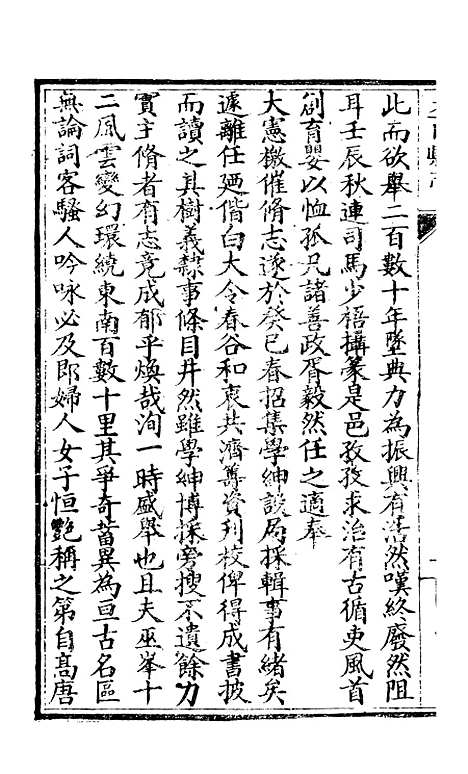 此而欲舉二百數十年墜典力為振興有浩然嘆終廢然阻
耳壬辰秋連司馬少梧攝篆是邑孜孜求治有古循吏風首
創育嬰以恤孤凡諸善政胥毅然任之適奉
大憲檄催脩志遂於癸巳春招集學紳設局採輯事有緒矣
遽離任廼偕白大令春谷和衷共濟籌資刋校俾得成書披
而讀之其樹義隸事條目井然雖學紳博採旁搜不遺餘力
實主脩者有志竟成郁乎煥哉洵一時盛舉也且夫巫峯十
二風雲變幻環繞東南百數十里其爭奇蓄異為亘古名區
無論詞客騷人吟咏必及即婦人女子恒艷稱之第自高唐